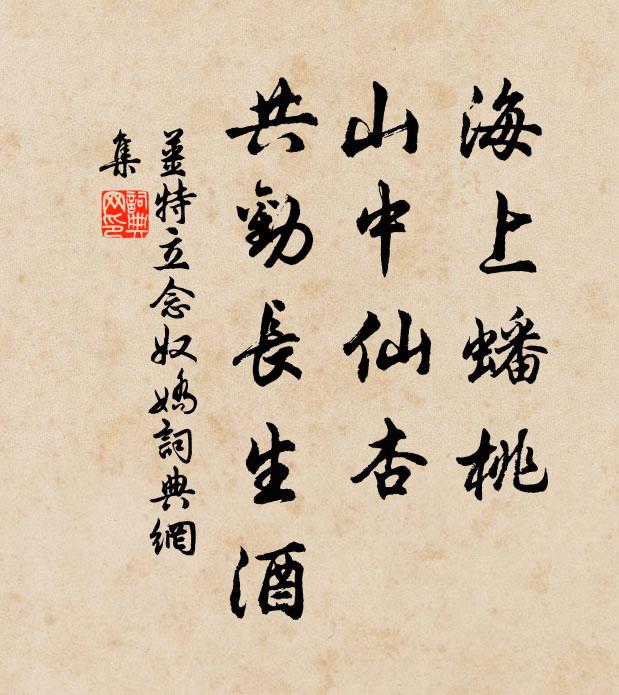 海上蟠桃
山中仙杏
共勸長生酒
薑特立念奴嬌詞典網
集
詞典网印